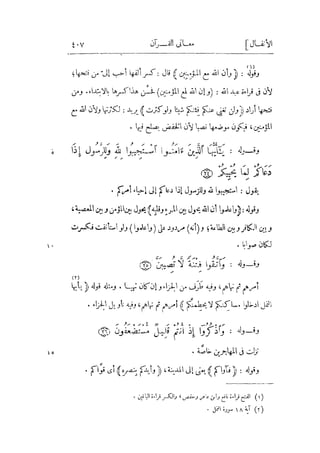 [ الأنفـال ] معـانى القـرآن ٤٠٧
وقوله : ﴿ وأن الله مع المؤمنين ﴾ (١) قال : كسر ألفها أحب إلىّ من فتحها؛
لأن فى قراءة عبد الله : ﴿ وإن الله لمع المؤمنين ﴾ فحسّن هذا كسرها بالابتداء. ومن
فتحها أراد ﴿ ولن تغنى عنكم فئتكم شيئا ولو كثرت ﴾ يريد : لكثرتها ولأن الله مع
المؤمنين، فيكون موضعها نصبا لأن الخفض يصلح فيها .
وقـــوله : يَٰٓأَيُّهَا ٱلَّذِينَ ءَامَنُوا ٱسْتَجِيبُوا لِلَّهِ وَلِلرَّسُولِ إِذَا ٥
دَعَاكُمْ لِمَا يُحْيِيكُمْ ٢٤
يقول : استجيبوا لله وللرسول إذا دعاكم إلى إحياء أمركم .
وقوله : ﴿ واعلموا أن الله يحول بين المرء وقلبه ﴾ يحول بين المؤمن وبين المعصية،
وبين الكافر وبين الطاعة؛ و ﴿ أنه ﴾ مردود على ﴿ واعلموا ﴾ ولو استأنفت فكسرت
لكان صوابا . ١٠
وقـــوله : وَٱتَّقُوا فِتْنَةً لَّا تُصِيبَنَّ ٢٥
أمرهم ثم نهاهم، وفيه طَرَف من الجزاء وإن كان نهيـا . ومثله قوله ﴿ يأيها (٢)
النمل ادخلوا مساكنكم لا يحطمنكم ﴾ أمرهم ثم نهاهم، وفيه تأويل الجزاء .
وقـــوله : وَٱذْكُرُوٓا إِذْ أَنتُمْ قَلِيلٌ مُّسْتَضْعَفُونَ ٢٦
نزلت فى المهاجرين خاصّة . ١٥
وقوله : ﴿ فآواكم ﴾ يعنى إلى المدينة، ﴿ وأيدكم بنصره ﴾ أى قوّاكم .
(١) الفتح قراءة نافع وابن عامر وحفص، والكسر قراءة الباقين .
(٢) آية ١٨ سورة النمل .